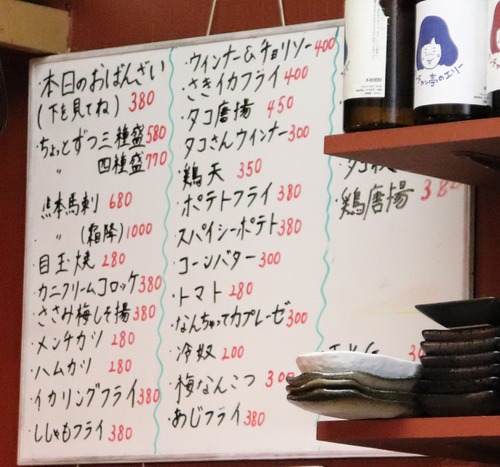 ・本日のおばんざい
(下を見てね) 380
・ちょっとずつ三種盛580
〃 四種盛770
・熊本馬刺 680
・〃 (霜降)1000
・目玉焼 280
・カニクリームコロッケ380
・ささみ梅しそ揚380
・メンチカツ 280
・ハムカツ 280
・イカリングフライ380
・ししゃもフライ 380
・ウィンナー&チョリソー400
・さきイカフライ400
・タコ唐揚 450
・タコさんウィンナー300
・鶏天 350
・ポテトフライ380
・スパイシーポテト380
・コーンバター300
・トマト 280
・なんちゃってカプレーゼ300
・冷奴 200
・梅なんこつ 300
・あじフライ 380
・鶏唐揚 380